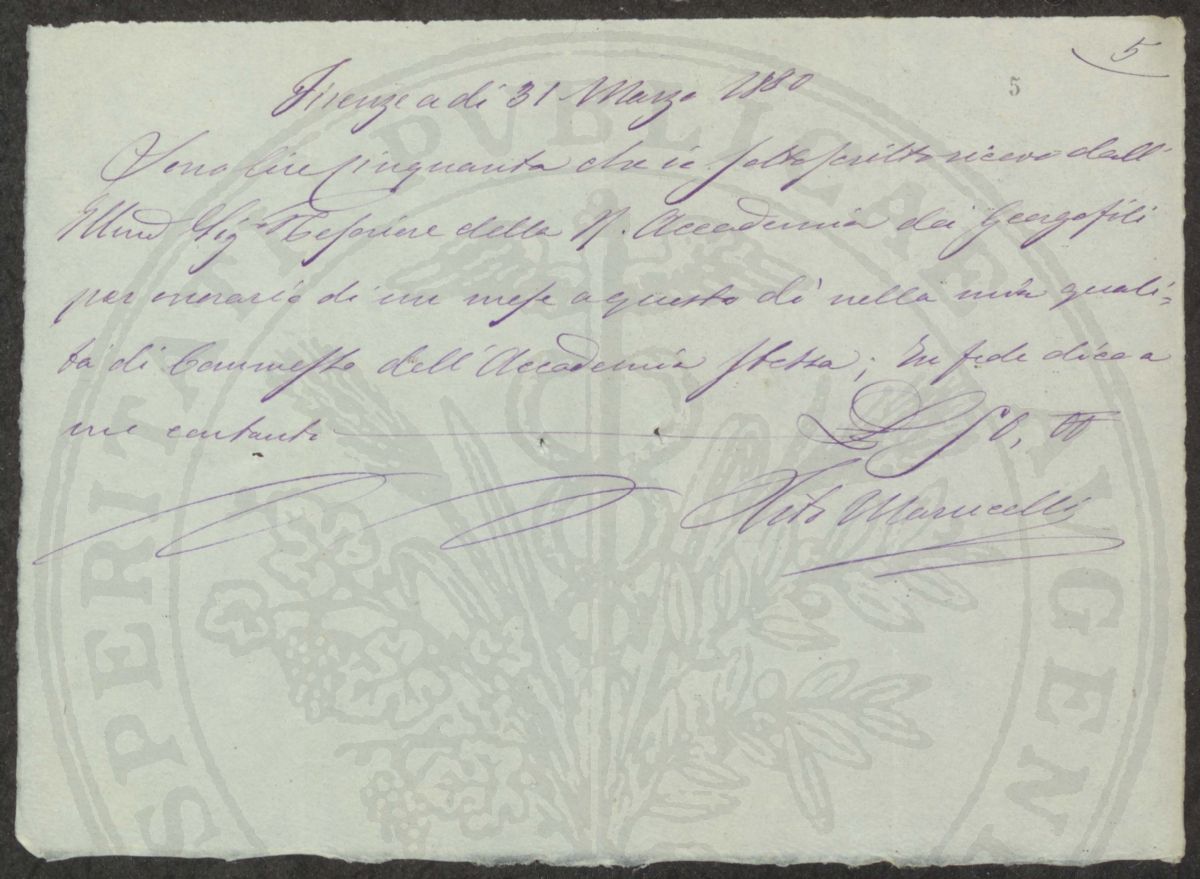 5
5
Firenze a di 31 Marzo 1880
Sono lire Cinquanta che io sottoscritto ricevo dall'
Illmo Sig Tesoriere della R. Accademia dei Georgofili
per onorario di un mese a questo dì nella mia quali=
tà di Commesso dell'Accademia stessa; In fede dico a
me contanti L 50, 00
Vito Marucelli
PROSPERITATI PVBLICAE AVGEN